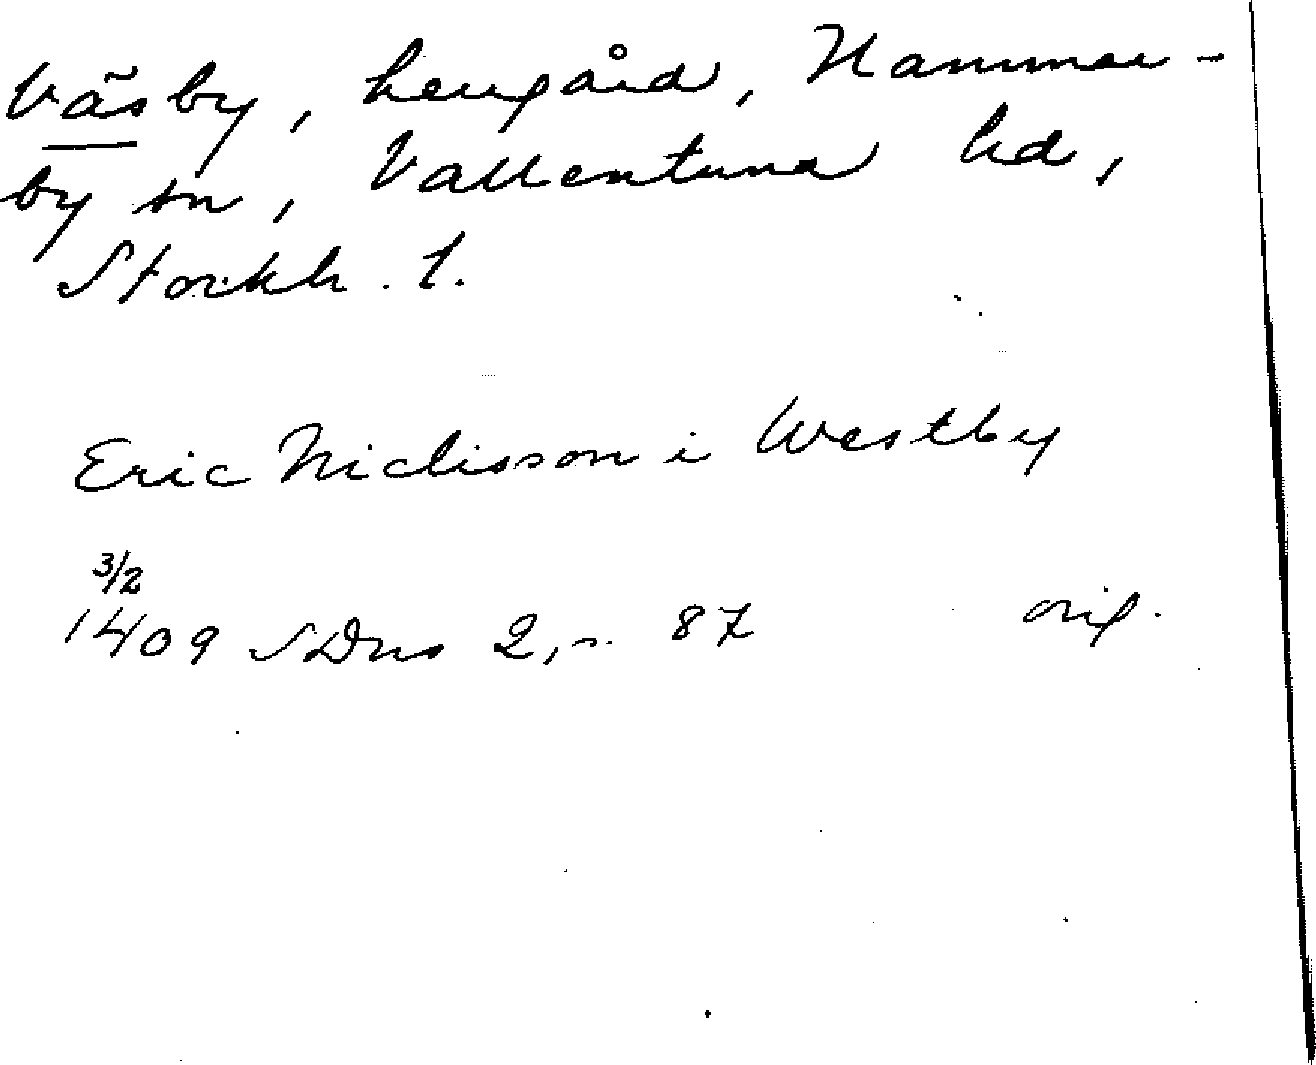 Väsby, herrgård, Hammar-
by sn, Vallentuna hd,
Stockh. l.
Eric Niclisson i Westby
3/2
1409 SDns 2, s. 87 orig.